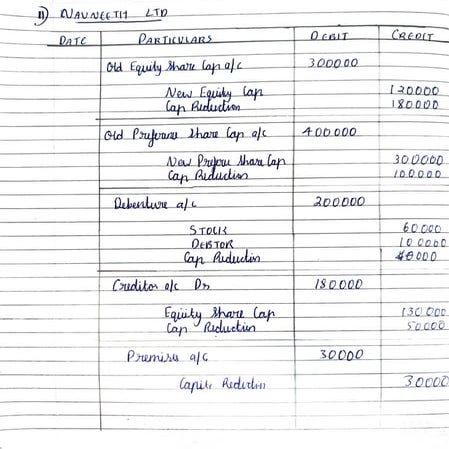 11) NAVNEETH LTD
DATE PARTICULARS DEBIT CREDIT
Old Equity Share Cap a/c 300000
New Equity Cap 120000
Cap Reduction 180000
Old Preference Share Cap a/c 400000
New Share Cap 300000
Cap Reduction 100000
Debenture a/c 200000
STOCK 60000
DEBTOR 100000
Cap Reduction 40000
Creditor a/c Dr 180000
Equity Share Cap 130000
Cap Reduction 50000
Premises a/c 30000
Reduction 30000